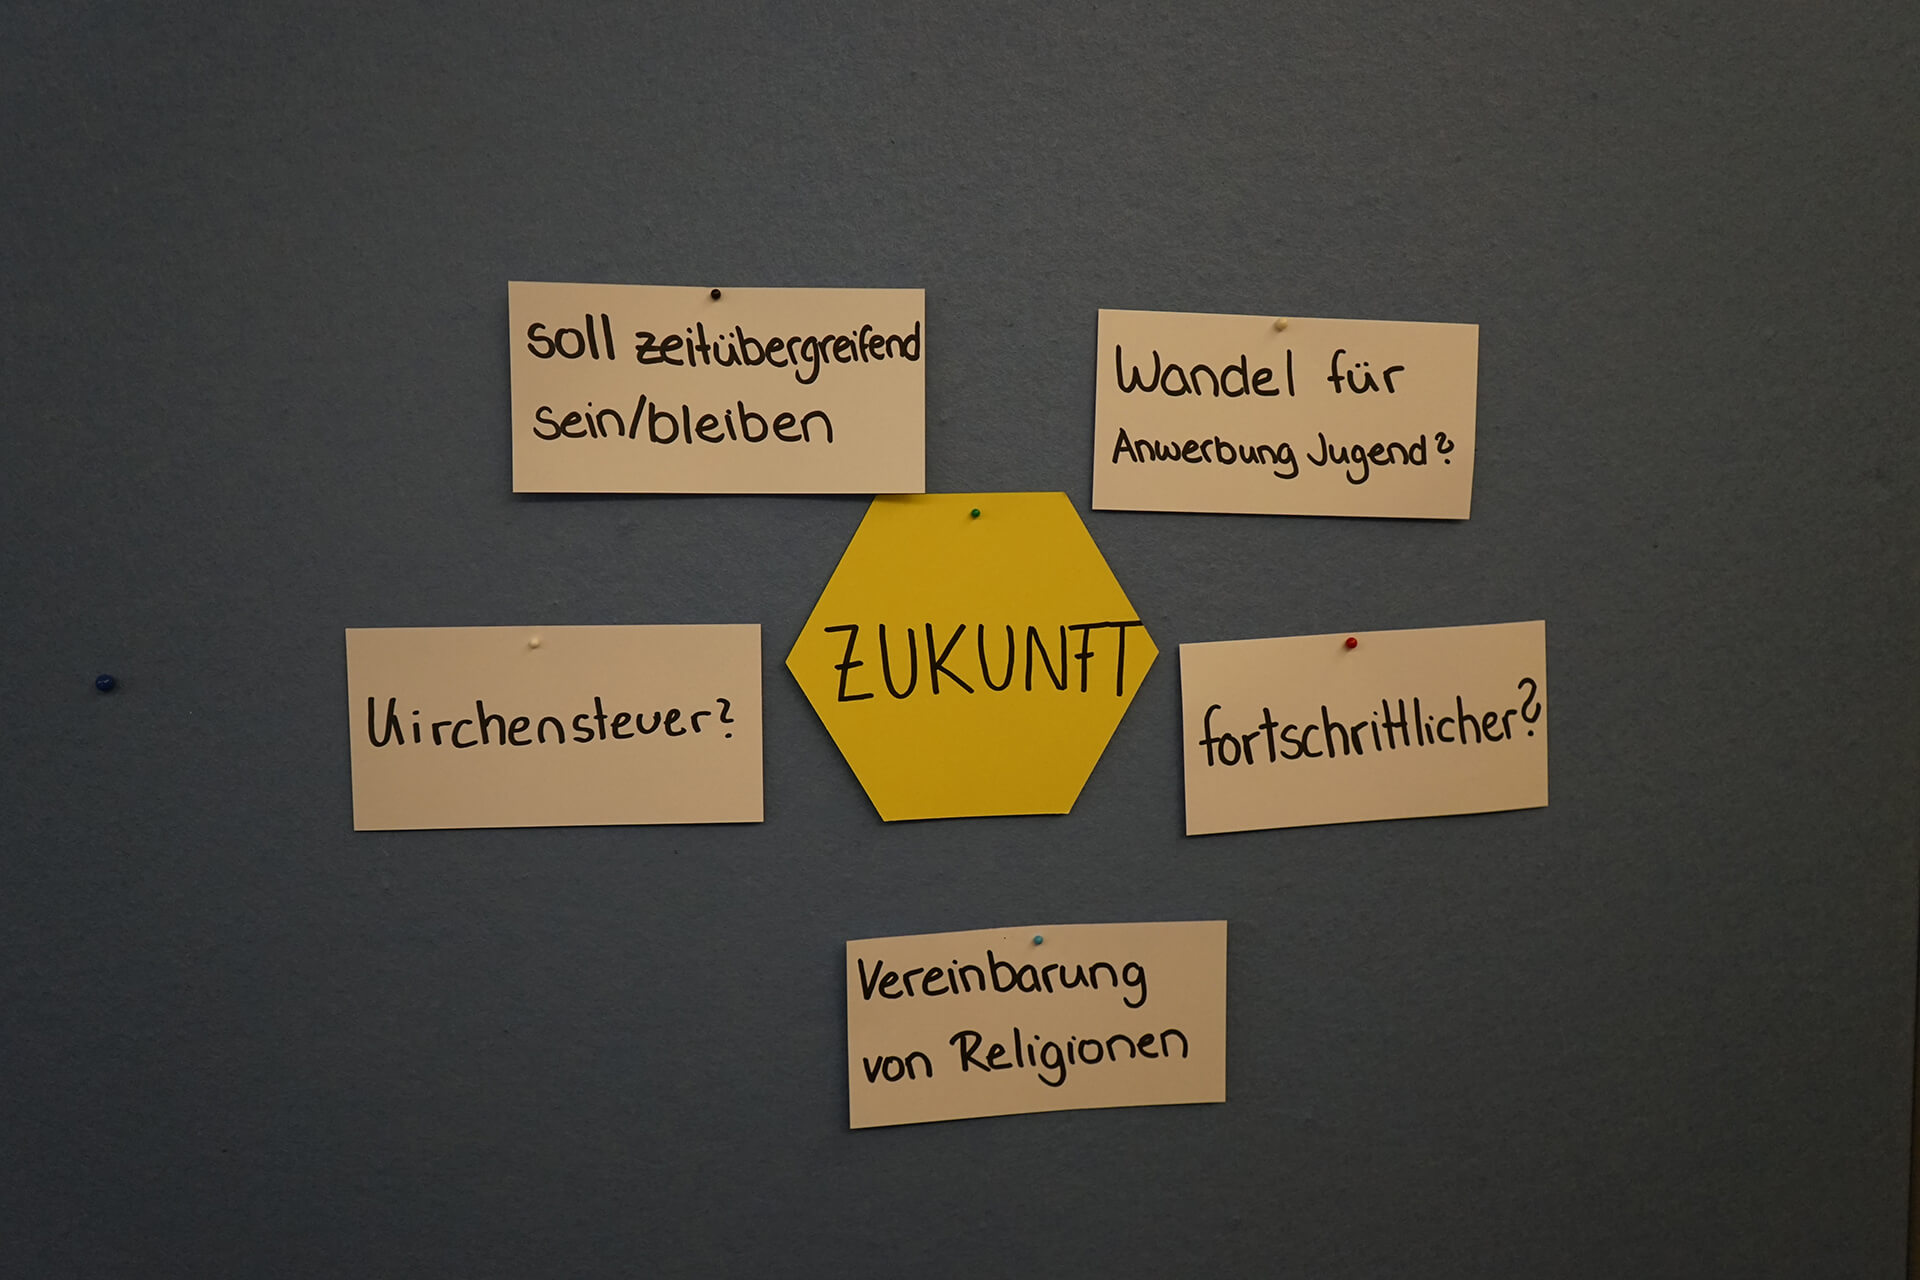 soll zeitübergreifend
sein/bleiben
Wandel für
Anwerbung Jugend?
ZUKUNFT
Kirchensteuer?
fortschrittlicher?
Vereinbarung
von Religionen